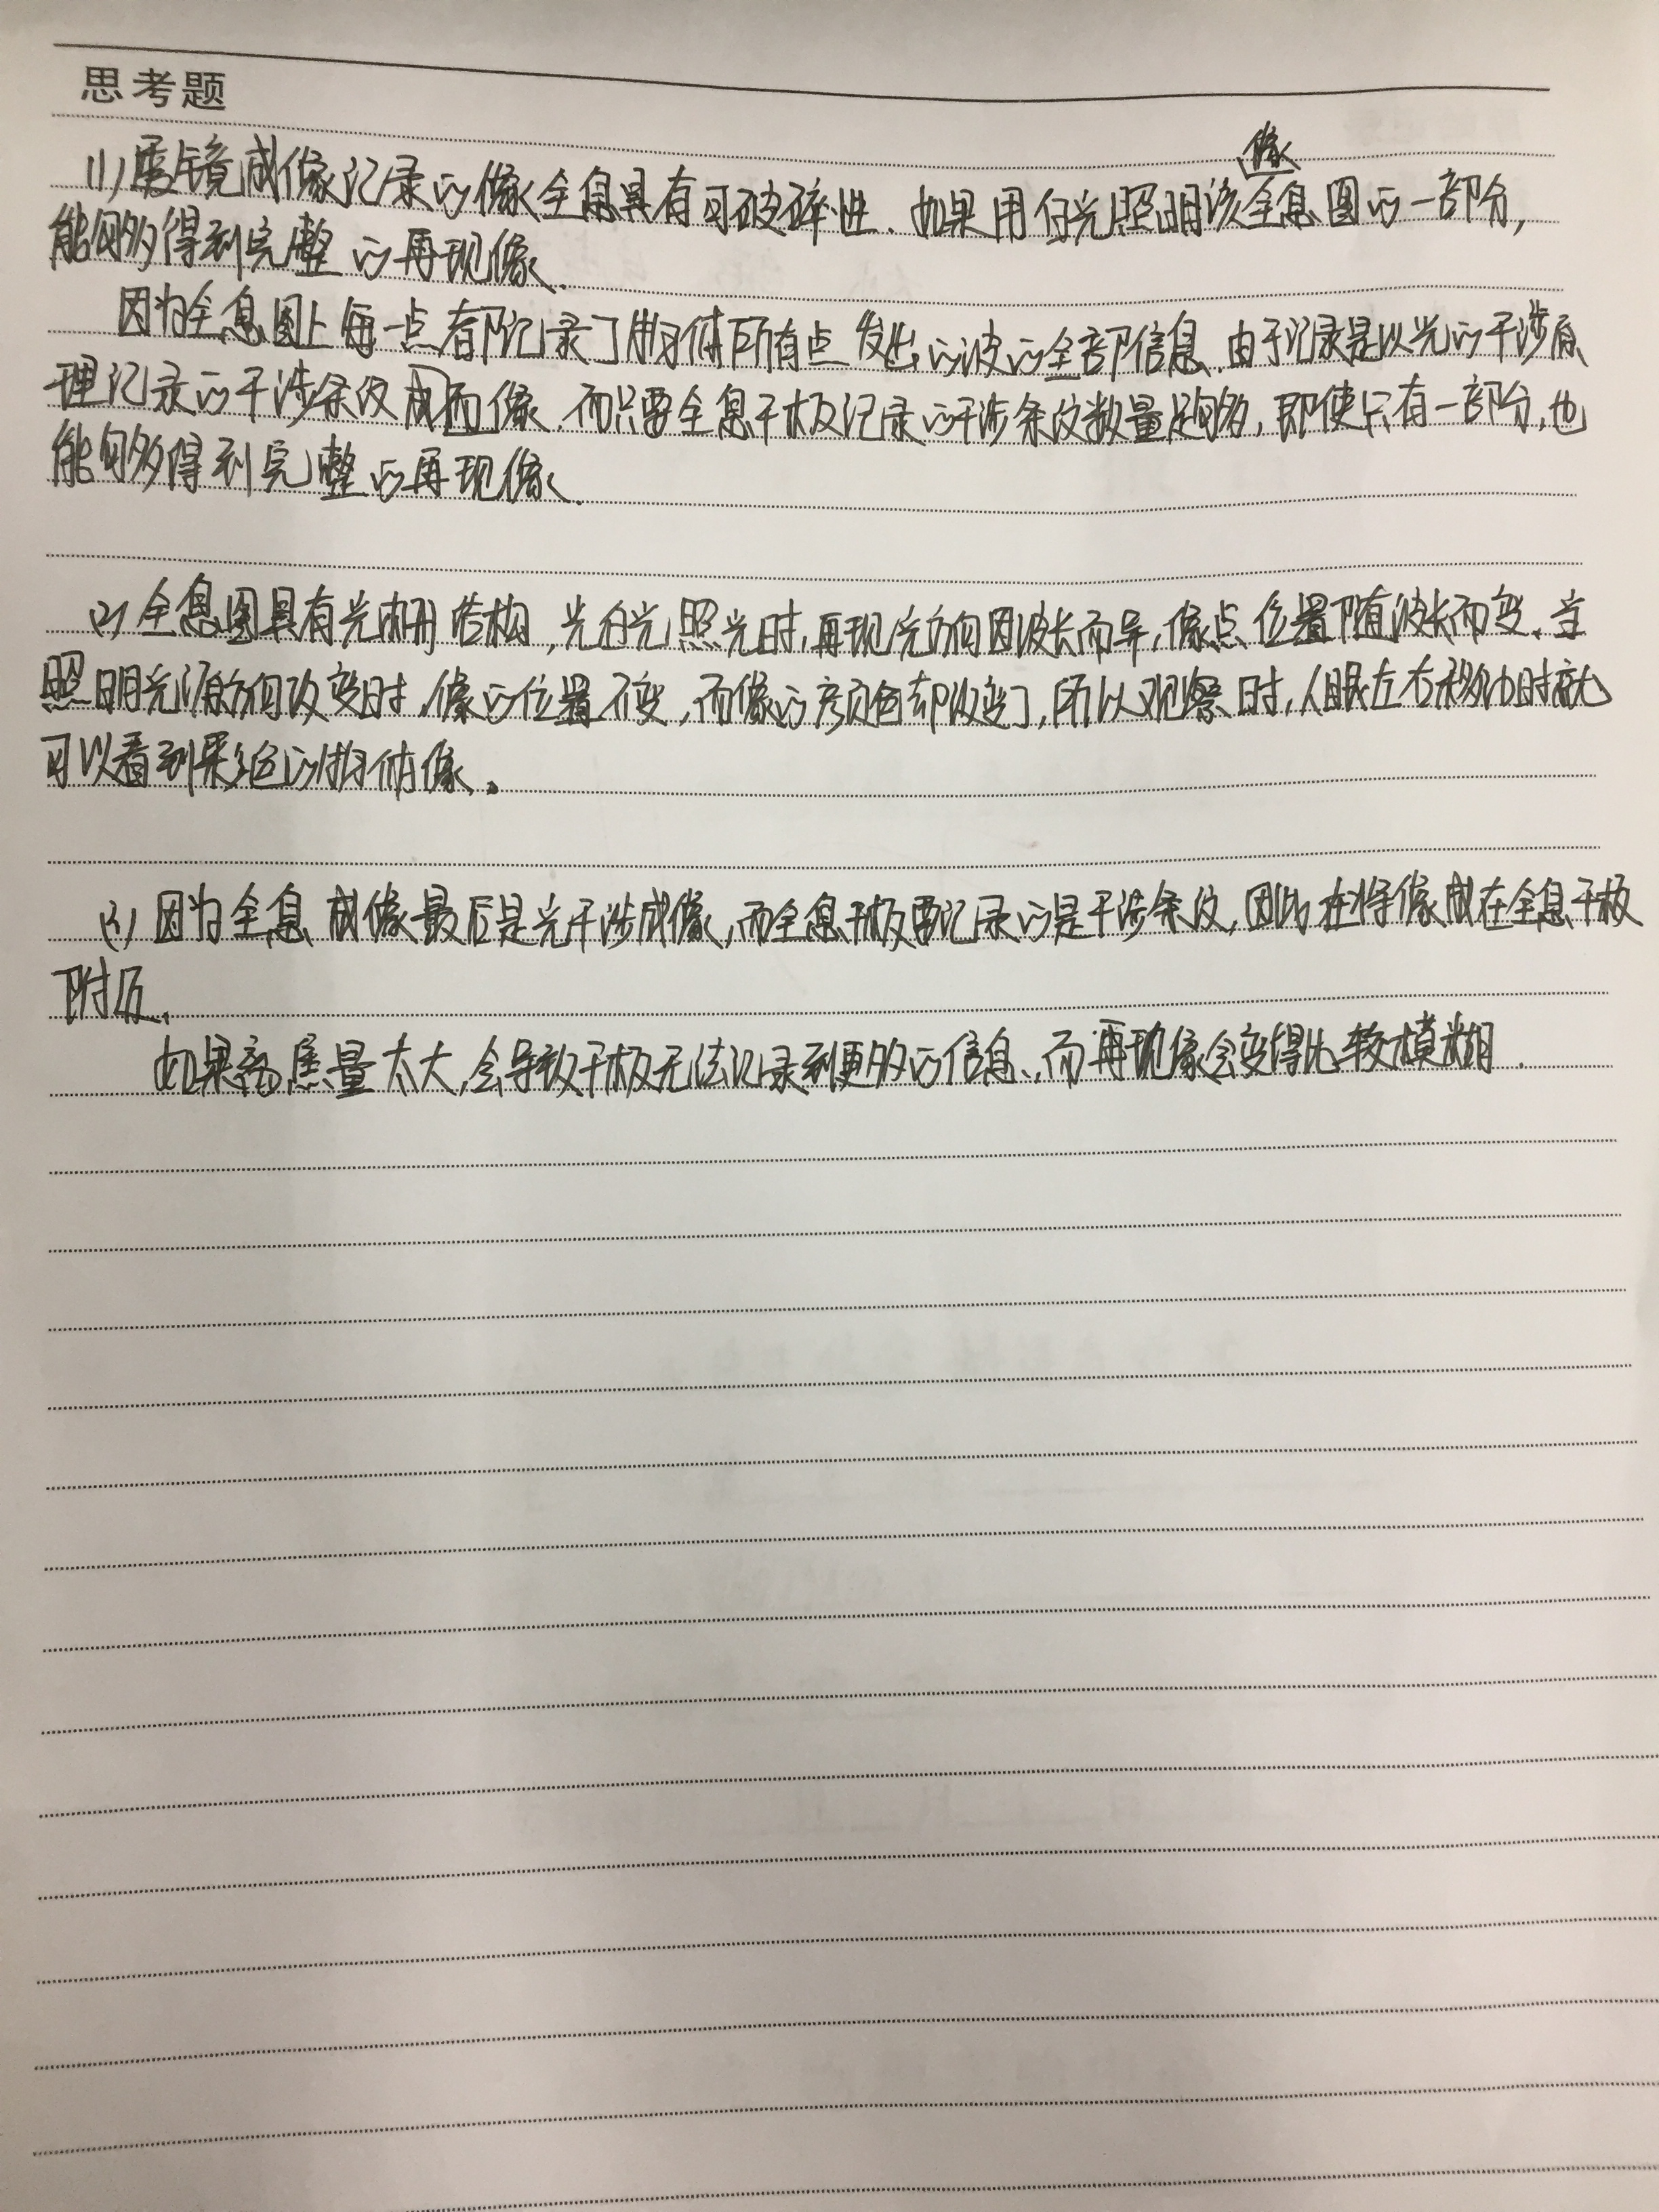 思考题
(1) 透镜成像记录的像全息具有可破碎性.如果用白光照明该像全息图的一部分,
能够得到完整的再现像.
因为全息图上每一点都记录了物体所有点发出的波的全部信息.由于记录是以光的干涉原
理记录的干涉条纹成而像.而只要全息干板记录的干涉条纹数量足够多,即使只有一部分,也
能够得到完整的再现像.
(2) 全息图具有光栅结构,当白光照光时,再现光方向因波长而异,像点位置随波长而变.当
照明光源方向改变时,像的位置不变,而像的颜色却改变了,所以观察时,人眼左右移动时就
可以看到彩色的物体像。
(3) 因为全息成像最后是光干涉成像,而全息干板要记录的是干涉条纹,因此在将像成在全息干板
附近.
如果离焦量太大,会导致干板无法记录到更多的信息.,而再现像会变得比较模糊.